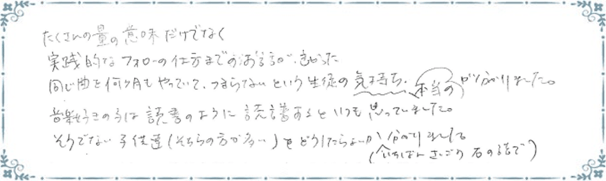 たくさんの量の意味だけでなく
実践的なフォローの仕方までのお話が、良かった
同じ曲を何ヶ月もやっていて、つまらないという生徒の気持ち、本当の が分かりました。
音楽好きの子は読書のように読譜するといつも思っていました。
そうでない子供達(そちらの方が多い)をどうしたらよいか分かりました
(いちばんさいごの石の話で)